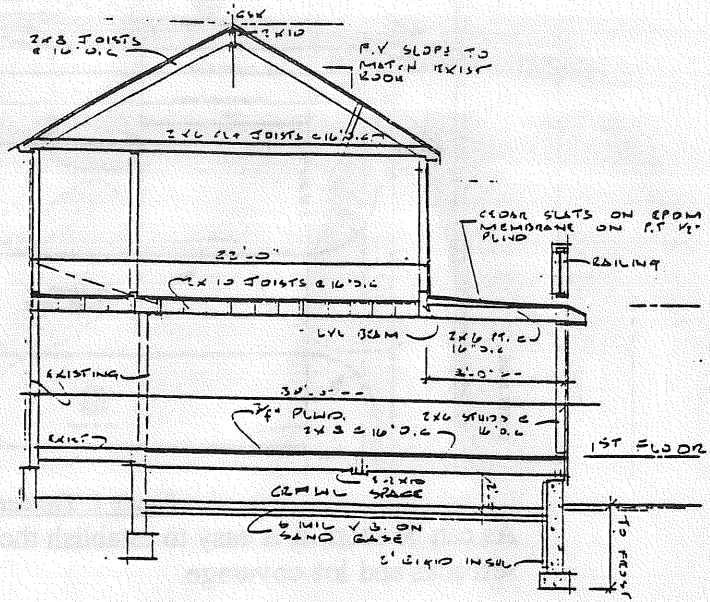 2x8 JOISTS
@ 16" O.C
2x10
F.V SLOPE TO
MATCH EXIST
ROOF
2x6 CLG JOISTS @ 16" O.C.
CEDAR SLATS ON EPDM
MEMBRANE ON P.T ½"
PLWD
RAILING
22'-0"
2x10 JOISTS @ 16" O.C
LVL BEAM
2x6 P.T. @
16" O.C
EXISTING
8'-0"
30'-0"
¾" PLWD.
2x8 @ 16" O.C
2x6 STUDS @
16" O.C
EXIST
1ST FLOOR
3-2x10
CRAWL SPACE
2'
6 MIL V.B. ON
SAND BASE
2" RIGID INSUL
TO FROST
easy to establish the
and lot coverage